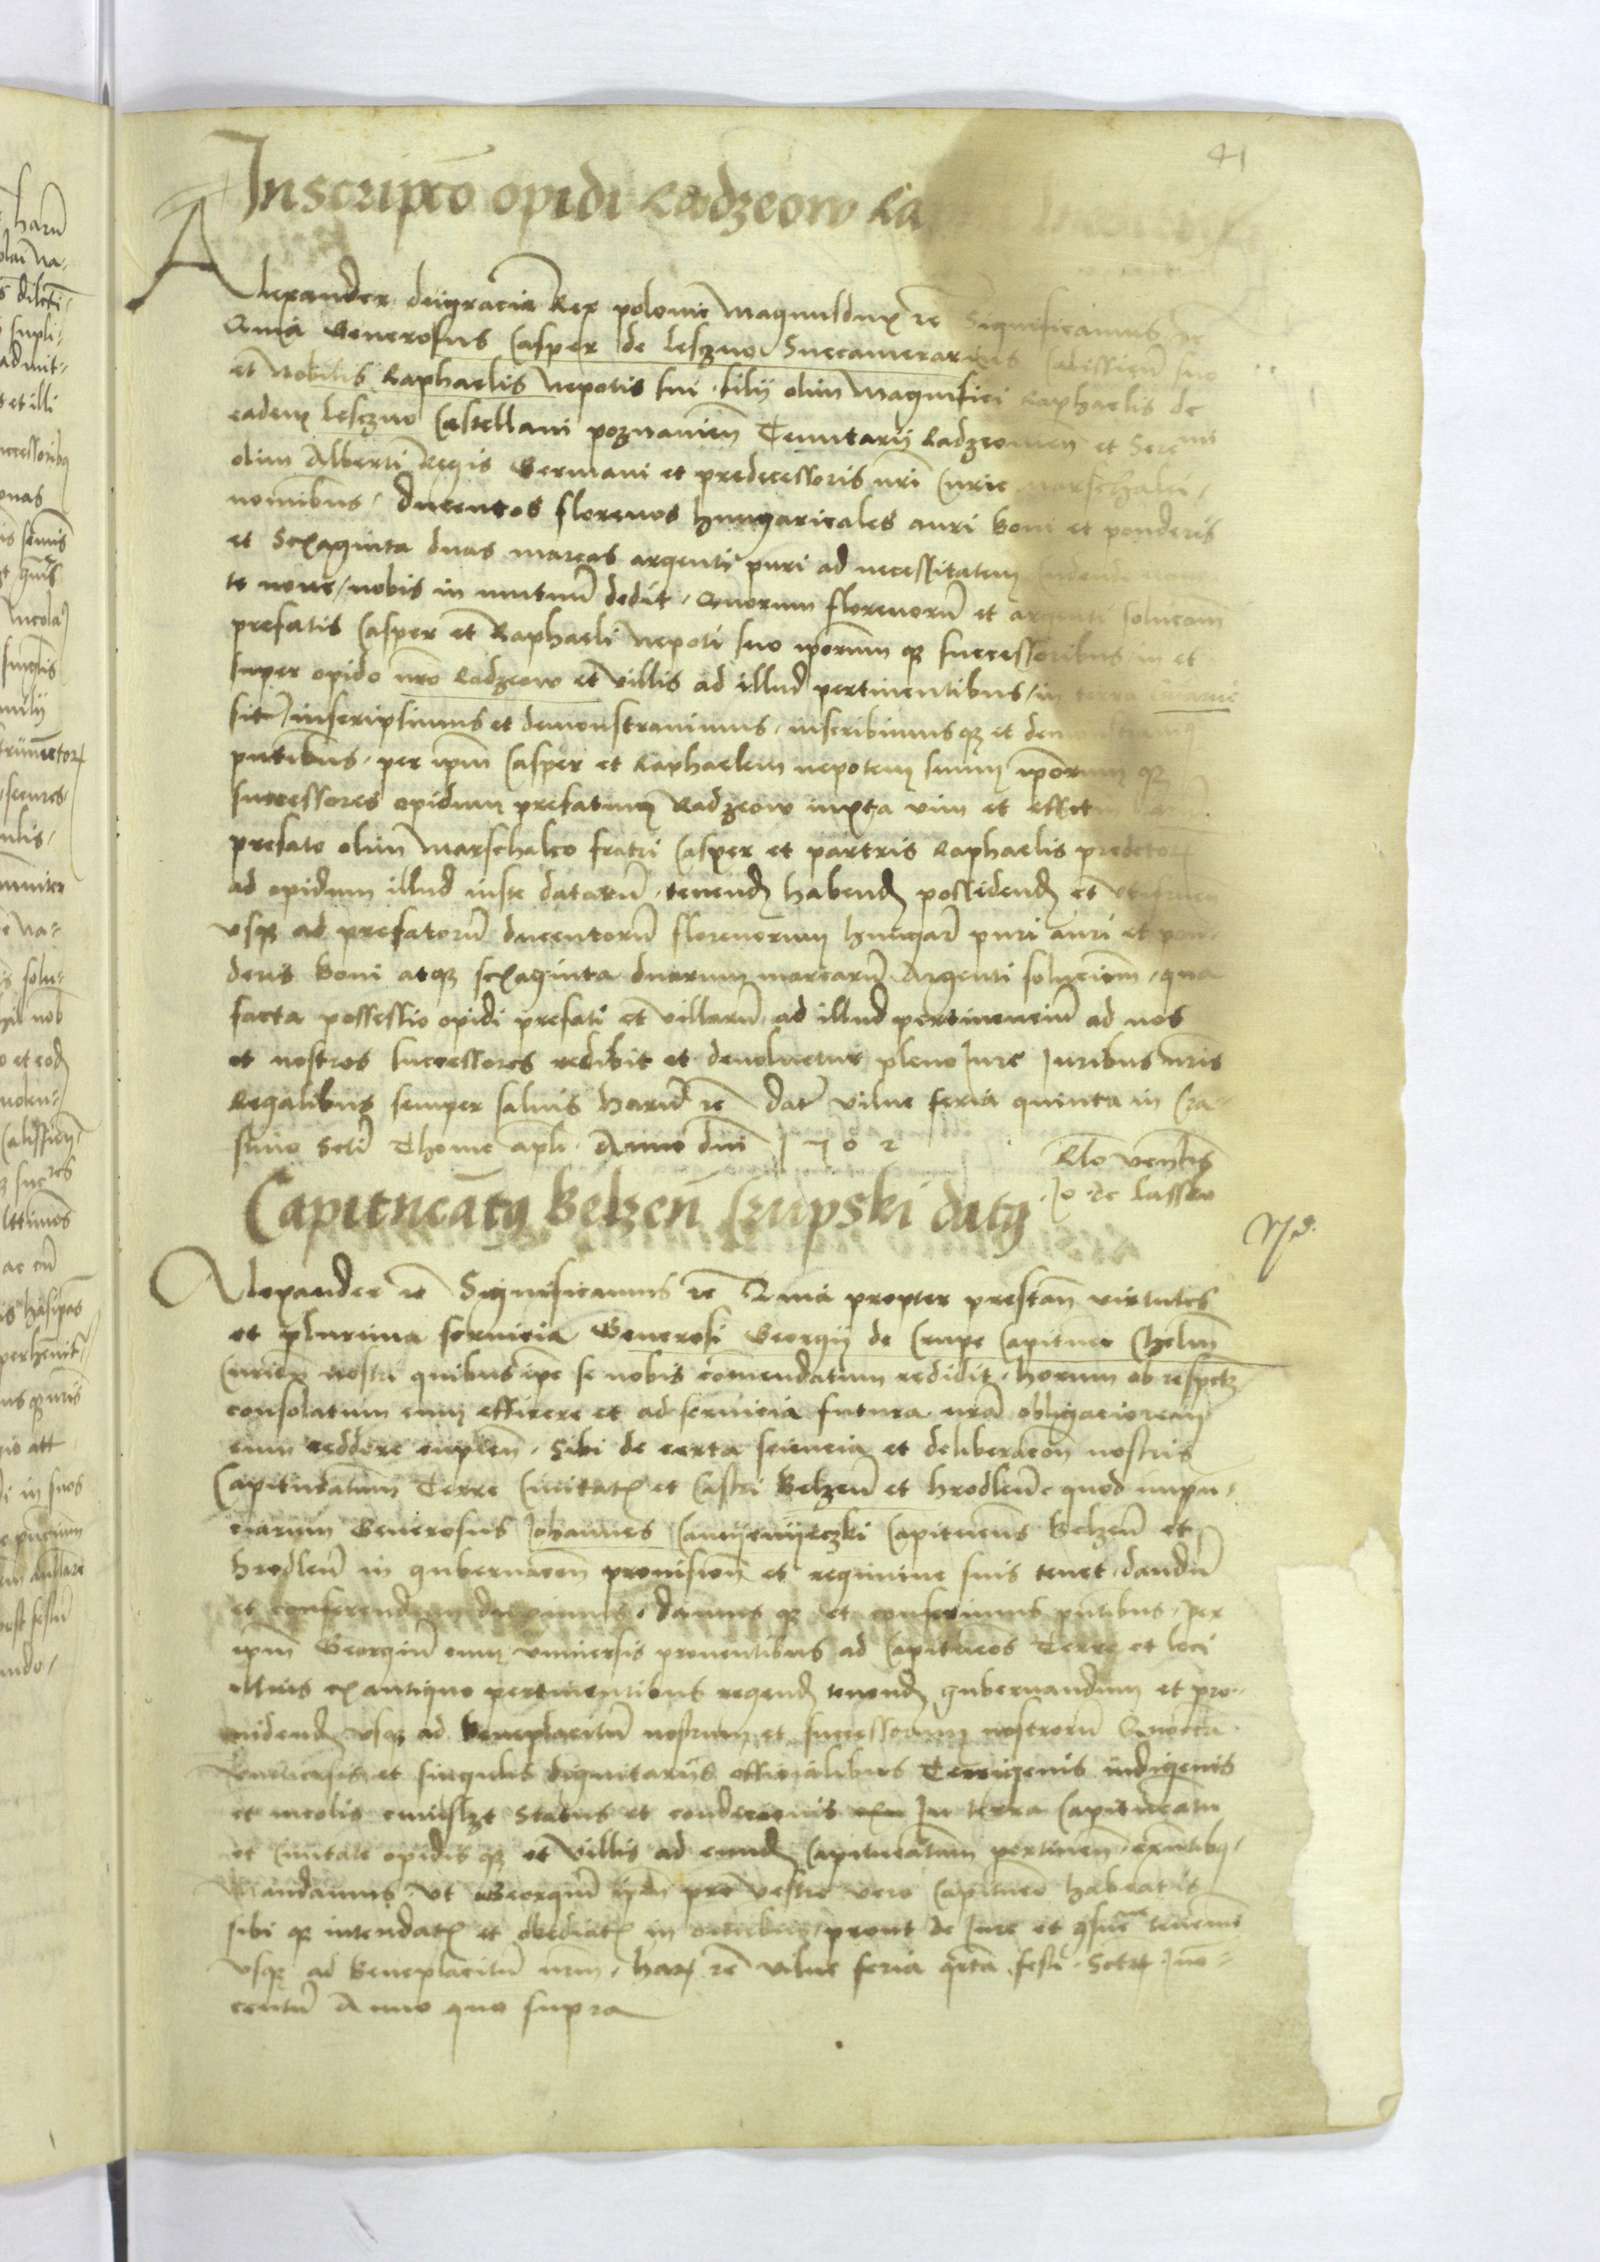 41
Inscripcō opidi Radzeow Ra
Alexander deigracia Rex polonie Magnusdux rc̄ Significamus rc̄
Quia Generosus Casper de Leszno Succamerarius Calissień suo
et Nobilis Raphaelis Nepotis sui filij olim Magnifici Raphaelis de
eadem Leszno Castellani poznanień Tenutarij Radzeowien et Sereᵐⁱ
olim Alberti Regis Germani et predecessoris nr̄i Curie Marschalci,
nominibus, ducentos florenos hungaricales auri boni et ponderis
et Sexaginta duas marcas argenti puri ad necessitatem
te nove, nobis in mutuū dedit, Quorum florenorū et argenti solucōm
prefatis Casper et Raphaeli Nepoti suo ip̄orum qȝ successoribus, in et
super opido nr̄o Radzeow et villis ad illud pertinentibus, in terra Cuiavie
sit̄, inscripsimus et demonstravimus, inscribimus qȝ et demonstramus
pn̄tibus, per ip̄m Casper et Raphaelem nepotem suum ip̄orum qȝ
successores opidum prefatum Radzeow iuxta vim et effectum
prefato olim Marschalco fratri Casper et partris Raphaelis predictorꝝ
ad opidum illud iuste datarū, tenend̄ habend̄ possidend̄ et utifruen
usqȝ ad prefatorū ducentorū florenorum hungar̄ puri auri et pon-
deris boni atqȝ sexaginta duarum marcarū Argenti soluciōm, qua
facta possessio opidi prefati et villarū ad illud pertinenciū ad nos
et nostros successores redibit et devolvetur pleno Jure Juribus nr̄is
Regalibus semper salvis harū rc̄ dat̄ vilne feria quinta in Cra-
stino Scti Thome apl̄i Anno dn̄i 1502
Rl̄o ven̄lis
Jo de Lassko
Capitneatꝰ Belzeń Krupski datꝰ
Alexander rc̄ Significamus rc̄ Quia propter prestan̄ virtutes
et plurima servicia Generosi Georgij de Crupe Capitnei Chelm̄
Curien̄ nostri quibus ip̄e se nobis comendatum redidit, horum ob respectū
consolatum eum efficere et ad servicia futura nr̄a obligaciorem
eum reddere cupien̄, Sibi de certa sciencia et deliberacōn nostris
Capitneatum Terre Civitatꝭ et Castri Belzeń et hrodleń, quod
Generosus Johannes Capitneus Belzeń et
hrodleń in gubernacōn provision̄ et regimine suis tenet, dandū
et conferendum duximus, damus qȝ et conferimus pn̄tibus, per
ip̄m Georgiū cum universis proventibus ad Capitneos Terre et loci
illius ex antiquo pertinentibus regend̄ tenend̄ gubernandum et pro-
videnḍ usqȝ ad beneplacitū nostrum et successorum nostrorū Quocirca
Universis et singulis dignitarijs officialibus Terrigenis indigenis
et incolis cuiuslȝt Status et condicionis In terra Capitneatu
et Civitate opidis qȝ et villis ad eund̄ Capitneatum pertinen̄ exn̄tibꝰ,
Mandamus, ut Georgiū ip̄m pro vestro vero Capitneo habeatis
sibi qȝ intendatꝭ et obediatꝭ in prout de Jure et ꝯsue tenemī
usqȝ ad beneplacitū nr̄m, harꝝ rc̄ Vilne feria qrta festi Sctrꝝ Ino-
centū Anno quo supra